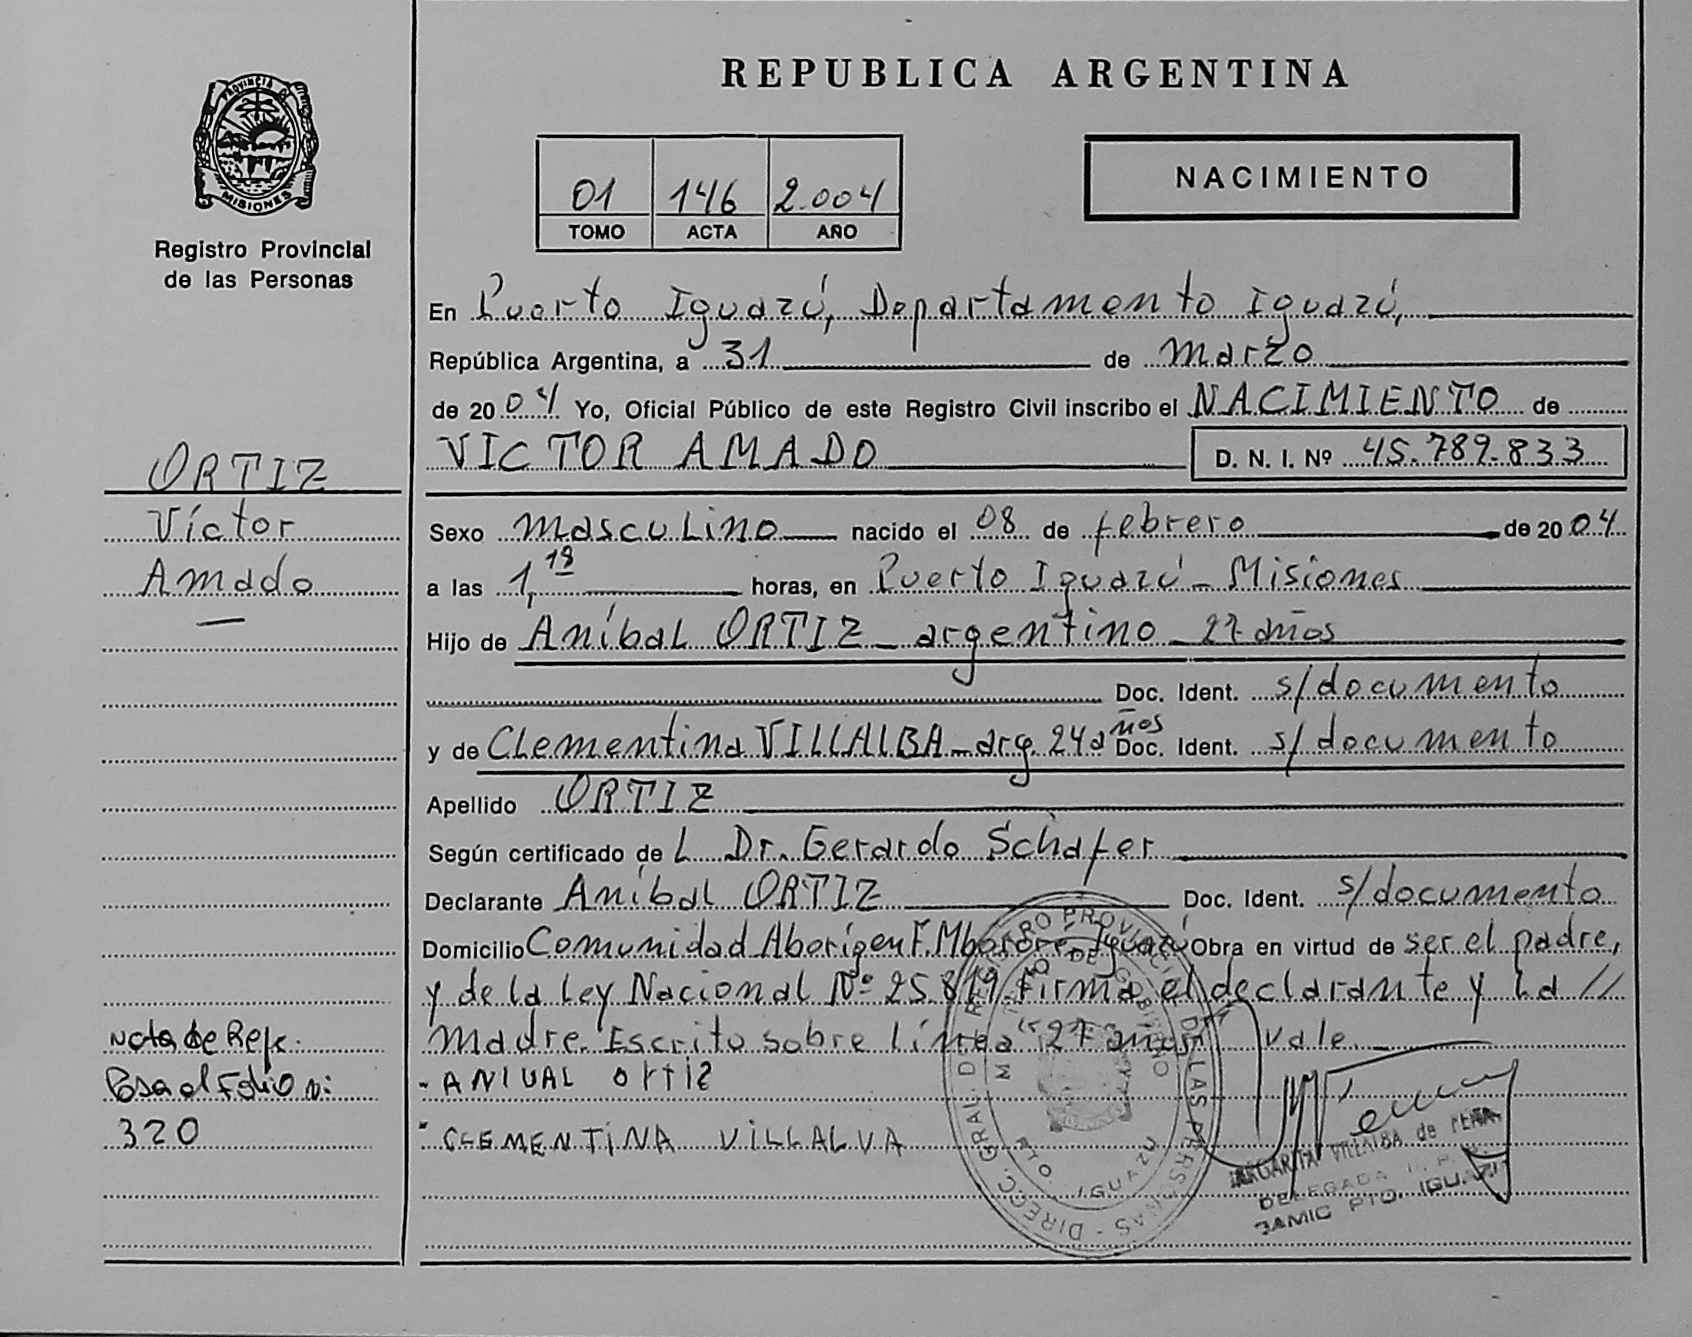 REPUBLICA ARGENTINA
PROVINCIA DE
MISIONES
Registro Provincial
de las Personas
NACIMIENTO
01 146 2.004
TOMO ACTA AÑO
En Puerto Iguazú, Departamento Iguazú,
República Argentina, a 31 de marzo
de 2004 Yo, Oficial Público de este Registro Civil inscribo el NACIMIENTO de
VICTOR AMADO D. N. I. Nº 45.789.833
ORTIZ
Víctor
Amado
Sexo masculino nacido el 08 de febrero de 2004
a las 1,18 horas, en Puerto Iguazú - Misiones
Hijo de Aníbal ORTIZ - argentino - 27 años
Doc. Ident. s/documento
y de Clementina VILLALBA - arg. 24 años Doc. Ident. s/documento
Apellido ORTIZ
Según certificado de L Dr. Gerardo Schafer
Declarante Aníbal ORTIZ Doc. Ident. s/documento
Domicilio Comunidad Aborigen F. Mbororé, Iguazú Obra en virtud de ser el padre,
y de la Ley Nacional Nº 25.819. Firma el declarante y la //
madre. Escrito sobre línea "27 años" Vale.
Nota de Refe.
Pasa al Folio n:
320
- ANIUAL ORTIZ
- CLEMENTINA VILLALVA
DIRECC. GRAL. DE REGISTRO PROVINCIAL DE LAS PERSONAS
MINISTERIO DE GOBIERNO
IGUAZU
MARGARITA VILLALBA de PEÑA
DELEGADA
PTO. IGUAZU